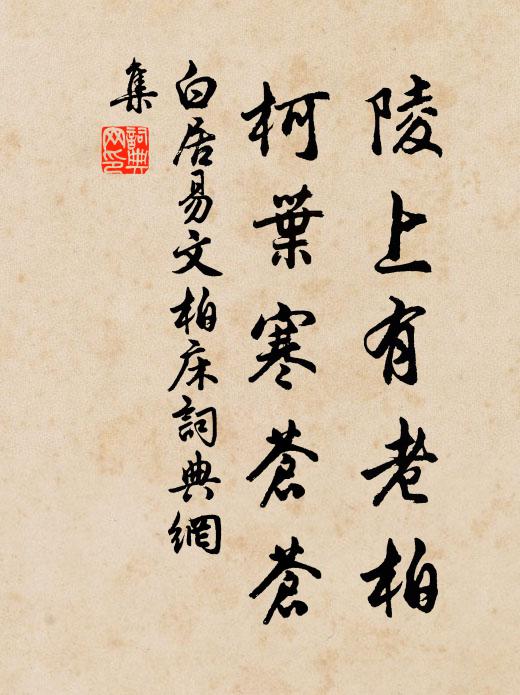 陵上有老柏
柯葉寒蒼蒼
白居易文柏床詞典網
集
詞典网印